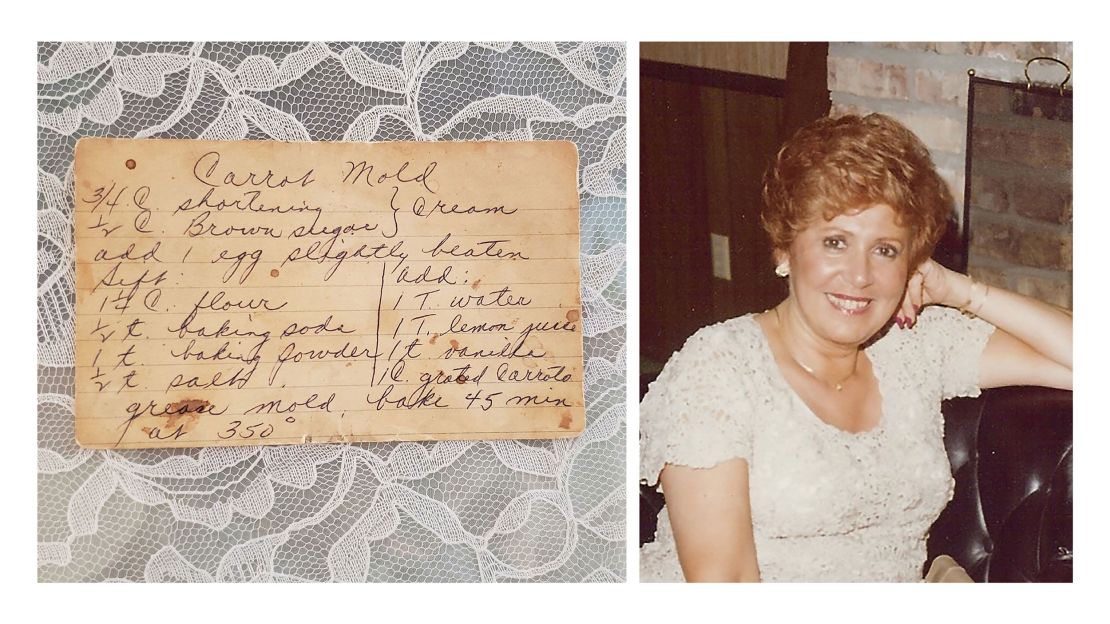 Carrot Mold
3/4 C. shortening } Cream
1/2 C. Brown sugar }
add 1 egg slightly beaten
Sift:
1 1/4 C. flour
1/2 t. baking soda
1 t. baking powder
1/2 t. salt
add:
1 T. water
1 T. lemon juice
1 t vanilla
1 C. grated Carrots
grease mold. bake 45 min
at 350°